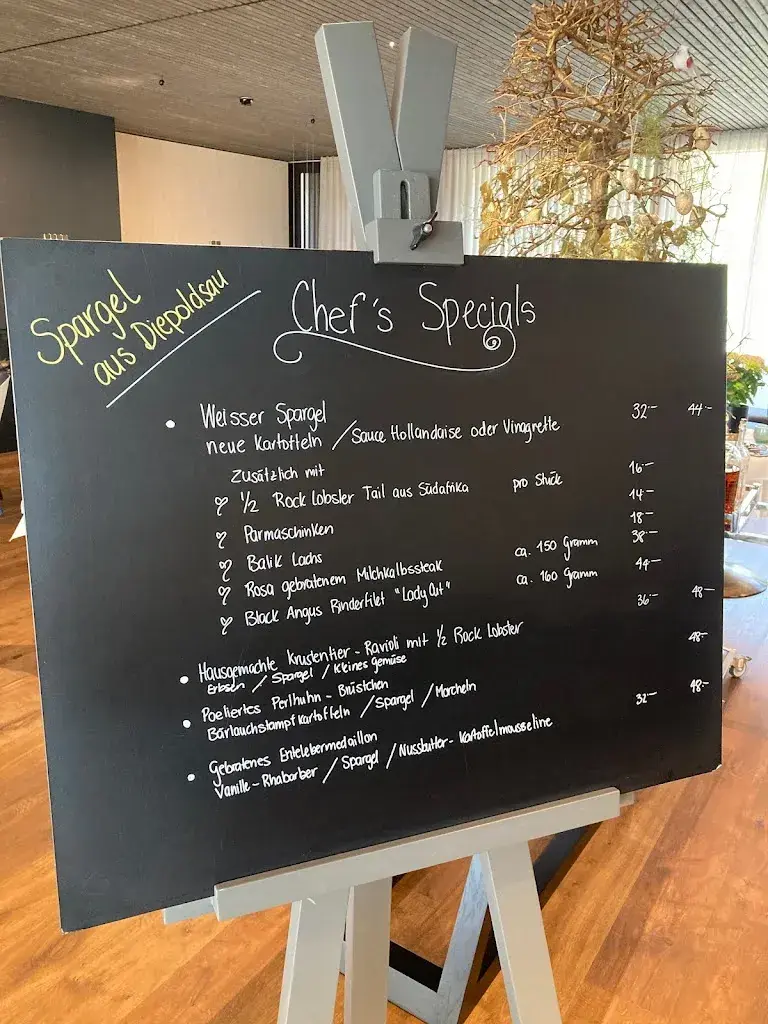 Spargel
aus Diepoldsau
Chef's Specials
• Weisser Spargel 32.- 44.-
neue Kartoffeln / Sauce Hollandaise oder Vinagrette
Zusätzlich mit
1/2 Rock Lobster Tail aus Südafrika pro Stück 16.-
Parmaschinken 14.-
Balik Lachs 18.-
Rosa gebratenem Milchkalbssteak ca. 150 Gramm 38.-
Black Angus Rinderfilet "Lady Cut" ca. 160 Gramm 44.-
• Hausgemachte Krustentier-Ravioli mit 1/2 Rock Lobster 36.- 48.-
Erbsen / Spargel / Kleines Gemüse
• Poeliertes Perlhuhn-Brüstchen 48.-
Bärlauchstampfkartoffeln / Spargel / Morcheln
• Gebratenes Entelebermedaillon 32.- 48.-
Vanille-Rhabarber / Spargel / Nussbutter-Kartoffelmousseline